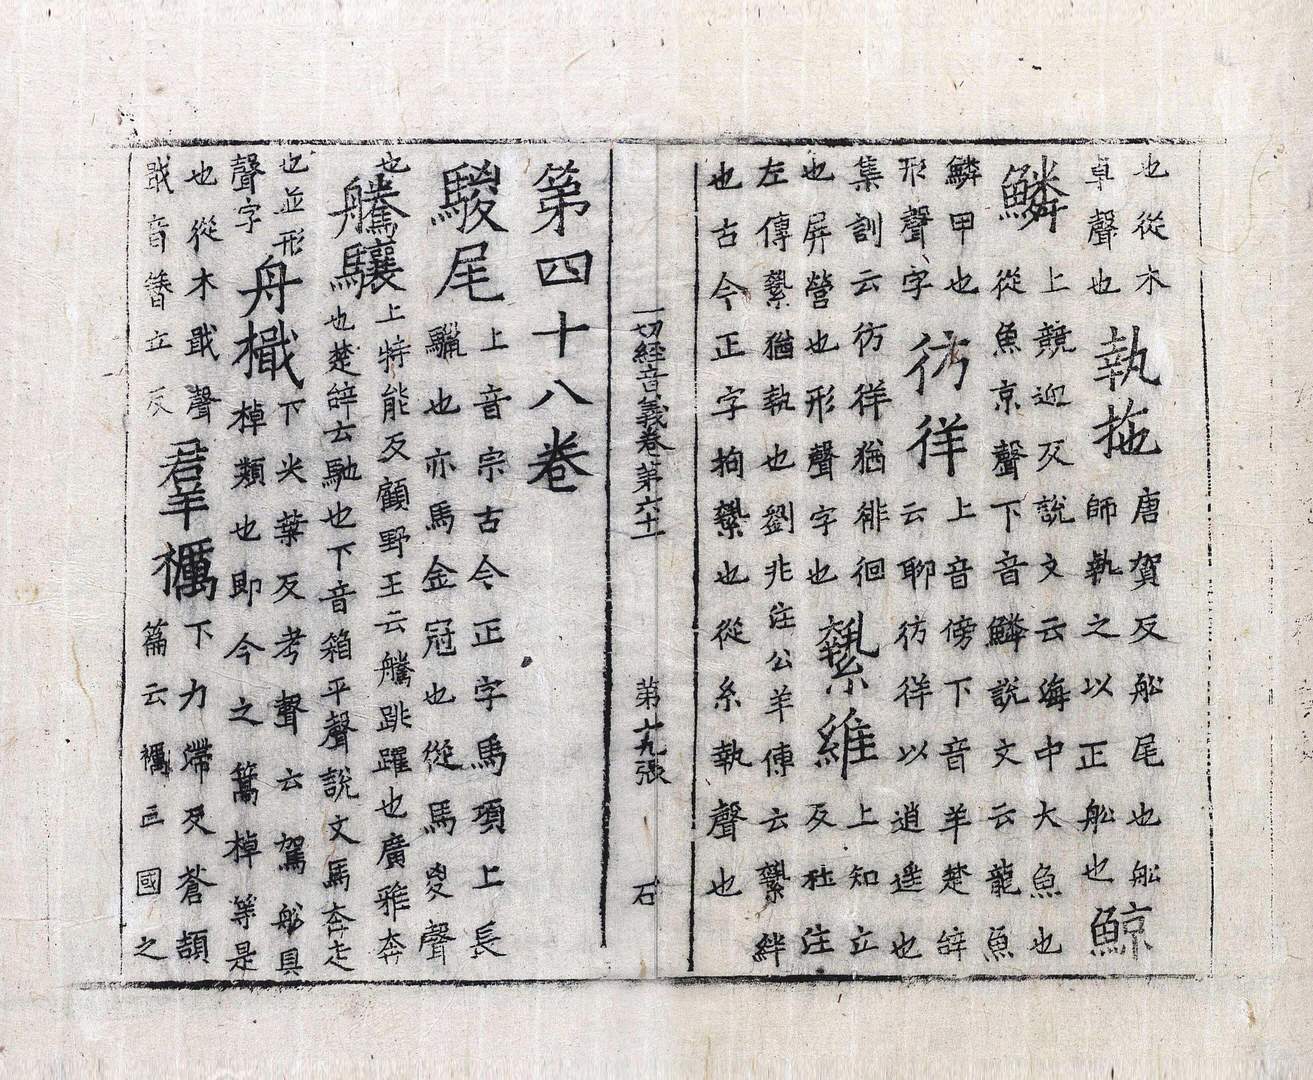 也從木
卓聲也
執拖
唐賀反船尾也船
師執之以正船也
鯨
鱗
上競迎反說文云海中大魚也
從魚京聲下音鱗說文云龍魚
鱗甲也
形聲字
彷徉
上音傍下音羊楚辝
云聊彷徉以逍遥也
集訓云彷徉猶徘徊
也屏營也形聲字也
縶維
上知立
反杜注
左傳縶猶執也劉兆注公羊傳云縶絆
也古今正字拘縶也從糸執聲也
一切經音義卷第六十
第十九張
石
第四十八卷
騣尾
上音宗古今正字馬項上長
驖也亦馬金冠也從馬㚇聲
也
騰驤
上特能反顧野王云騰跳躍也廣雅奔
也楚辝云馳也下音箱平聲說文馬奔走
也並形
聲字
舟檝
下尖葉反考聲云駕船具
棹類也即今之篙棹等是
也從木戢聲
戢音簪立反
羣䊪
下力滯反蒼頡
篇云 國之